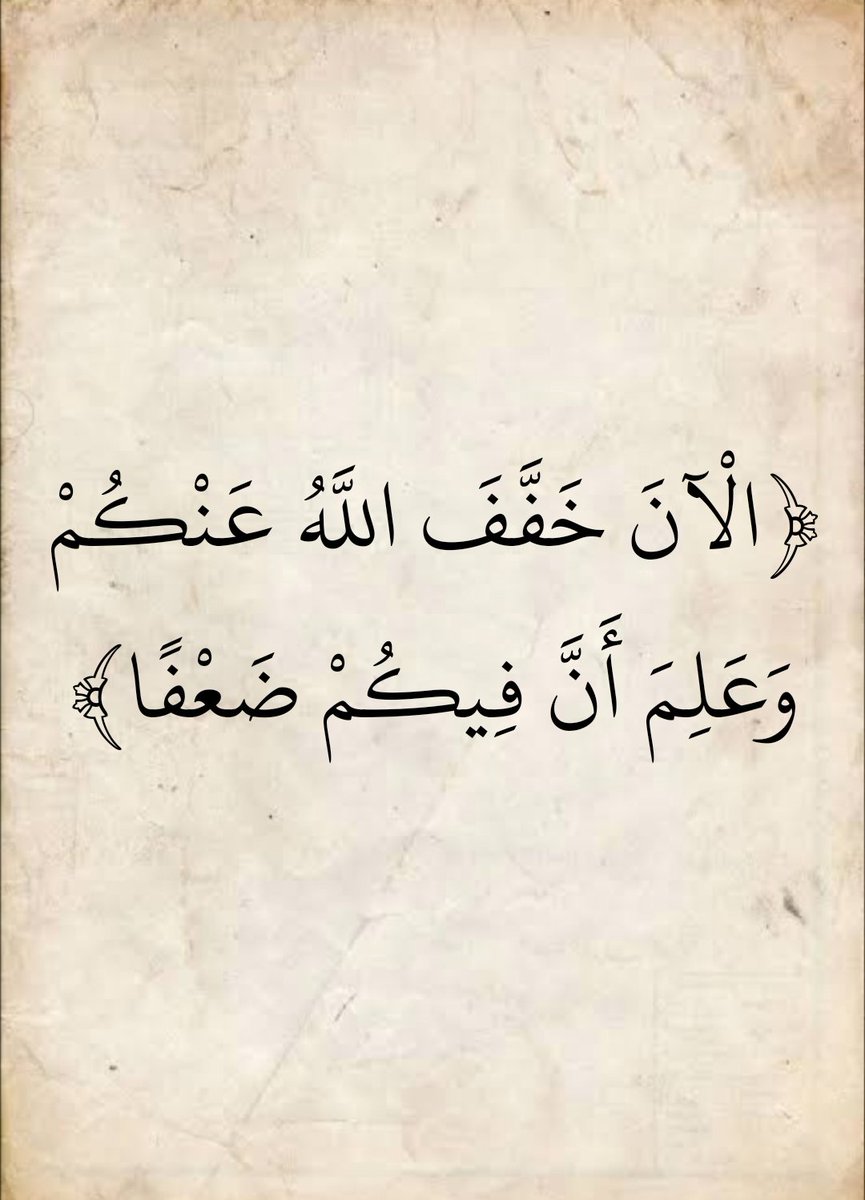 ﴿الْآنَ خَفَّفَ اللَّهُ عَنْكُمْ
وَعَلِمَ أَنَّ فِيكُمْ ضَعْفًا﴾